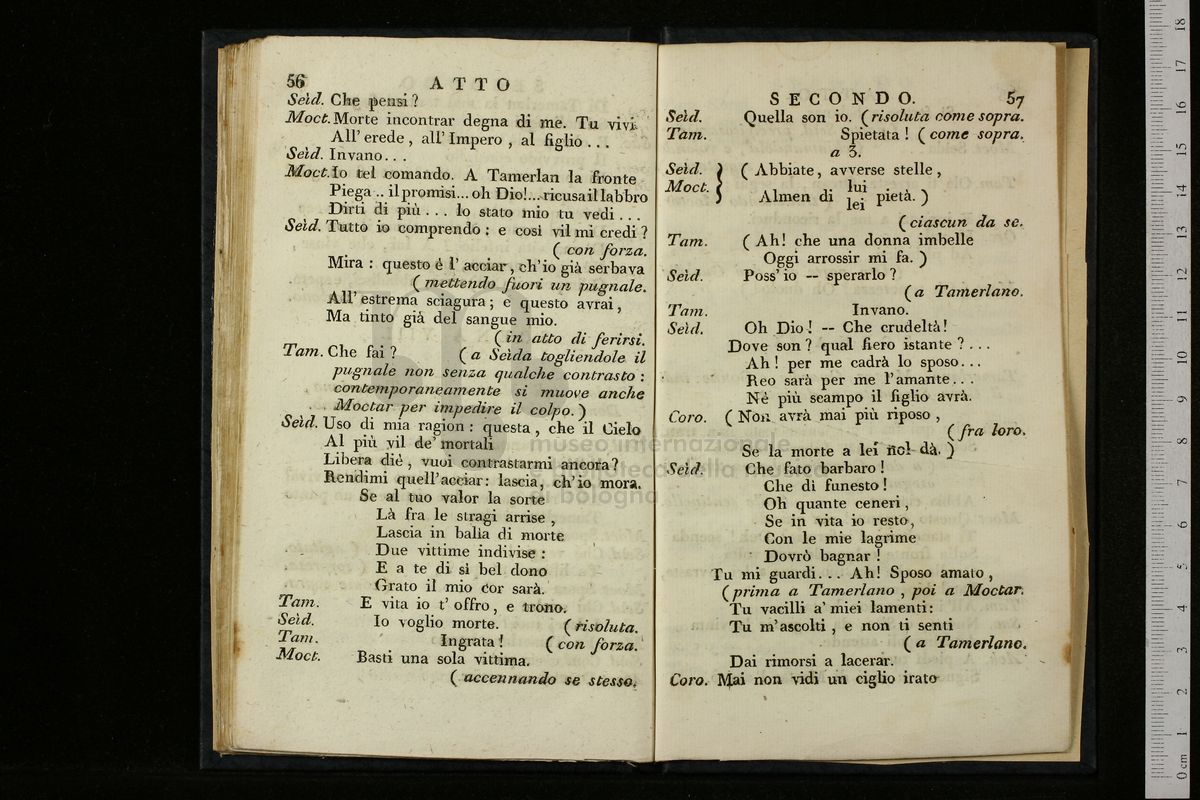 56 ATTO
Seìd. Che pensi ?
Moct. Morte incontrar degna di me. Tu vivi
All' erede , all' Impero , al figlio . . .
Seìd. Invano. . .
Moct. Io tel comando. A Tamerlan la fronte
Piega .. il promisi... oh Dio!... ricusa il labbro
Dirti di più . . . lo stato mio tu vedi . . .
Seìd. Tutto io comprendo : e così vil mi credi ?
( con forza.
Mira : questo è l' acciar , ch' io già serbava
( mettendo fuori un pugnale.
All' estrema sciagura ; e questo avrai ,
Ma tinto già del sangue mio.
( in atto di ferirsi.
Tam. Che fai ? ( a Seìda togliendole il
pugnale non senza qualche contrasto :
contemporaneamente si muove anche
Moctar per impedire il colpo. )
Seìd. Uso di mia ragion : questa , che il Cielo
Al più vil de' mortali
Libera diè , vuoi contrastarmi ancora ?
Rendimi quell' acciar : lascia, ch' io mora.
Se al tuo valor la sorte
Là fra le stragi arrise ,
Lascia in balìa di morte
Due vittime indivise :
E a te di sì bel dono
Grato il mio cor sarà.
Tam. E vita io t' offro , e trono.
Seìd. Io voglio morte. ( risoluta.
Tam. Ingrata ! ( con forza.
Moct. Basti una sola vittima.
( accennando se stesso.
SECONDO. 57
Seìd. Quella son io. ( risoluta come sopra.
Tam. Spietata ! ( come sopra.
a 3.
Seìd. } ( Abbiate, avverse stelle ,
Moct. } Almen di lui lei pietà. )
( ciascun da se.
Tam. ( Ah! che una donna imbelle
Oggi arrossir mi fa. )
Seìd. Poss' io -- sperarlo ?
( a Tamerlano.
Tam. Invano.
Seìd. Oh Dio ! -- Che crudeltà !
Dove son ? qual fiero istante ? . . .
Ah ! per me cadrà lo sposo. . .
Reo sarà per me l' amante. . .
Nè più scampo il figlio avrà.
Coro. ( Non avrà mai più riposo ,
( fra loro.
Se la morte a lei nol dà. )
Seìd. Che fato barbaro !
Che dì funesto !
Oh quante ceneri ,
Se in vita io resto,
Con le mie lagrime
Dovrò bagnar !
Tu mi guardi. . . Ah! Sposo amato ,
( prima a Tamerlano , poi a Moctar.
Tu vacilli a' miei lamenti :
Tu m' ascolti , e non ti senti
( a Tamerlano.
Dai rimorsi a lacerar.
Coro. Mai non vidi un ciglio irato
museo internazionale
e biblioteca della musica
bologna
0 cm 1 2 3 4 5 6 7 8 9 10 11 12 13 14 15 16 17 18